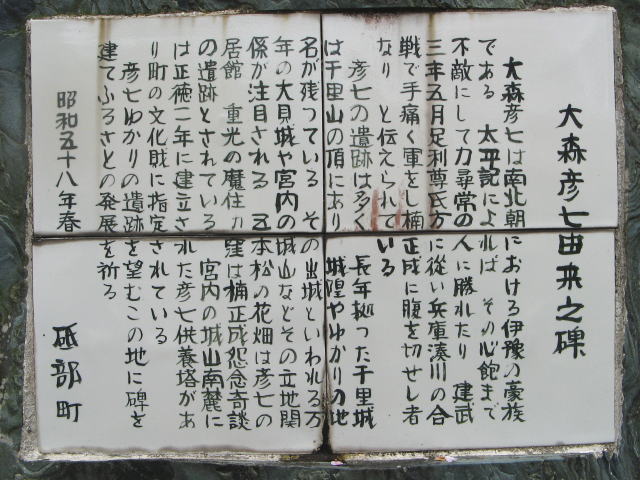 大森彦七由来之碑
大森彦七は南北朝における伊豫の豪族
である　太平記によれば　その心飽まで
不敵にして力尋常の人に勝れたり　建武
三年五月足利尊氏方に従い兵庫湊川の合
戦で手痛く軍をし楠正成に腹を切せし者
なり　と伝えられている
彦七の遺跡は多く　長年拠った千里城
は千里山の頂にあり　城隍やゆかりの地
名が残っている　その出城といわれる万
年の大貝城や宮内の城山などその立地関
係が注目される　五本松の花畑は彦七の
居館　重光の魔住ヵ窪は楠正成怨念奇談
の遺跡とされている　宮内の城山南麓に
は正徳二年に建立された彦七供養塔があ
り町の文化財に指定されている
彦七ゆかりの遺跡を望むこの地に碑を
建てふるさとの発展を祈る
昭和五十八年春　砥部町